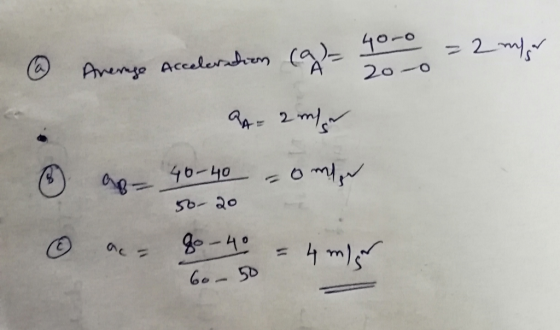 (a) Average Acceleration (a_A) = 40-0 / 20-0 = 2 m/s²
a_A = 2 m/s²
(b) a_B = 40-40 / 50-20 = 0 m/s²
(c) a_c = 80-40 / 60-50 = 4 m/s²